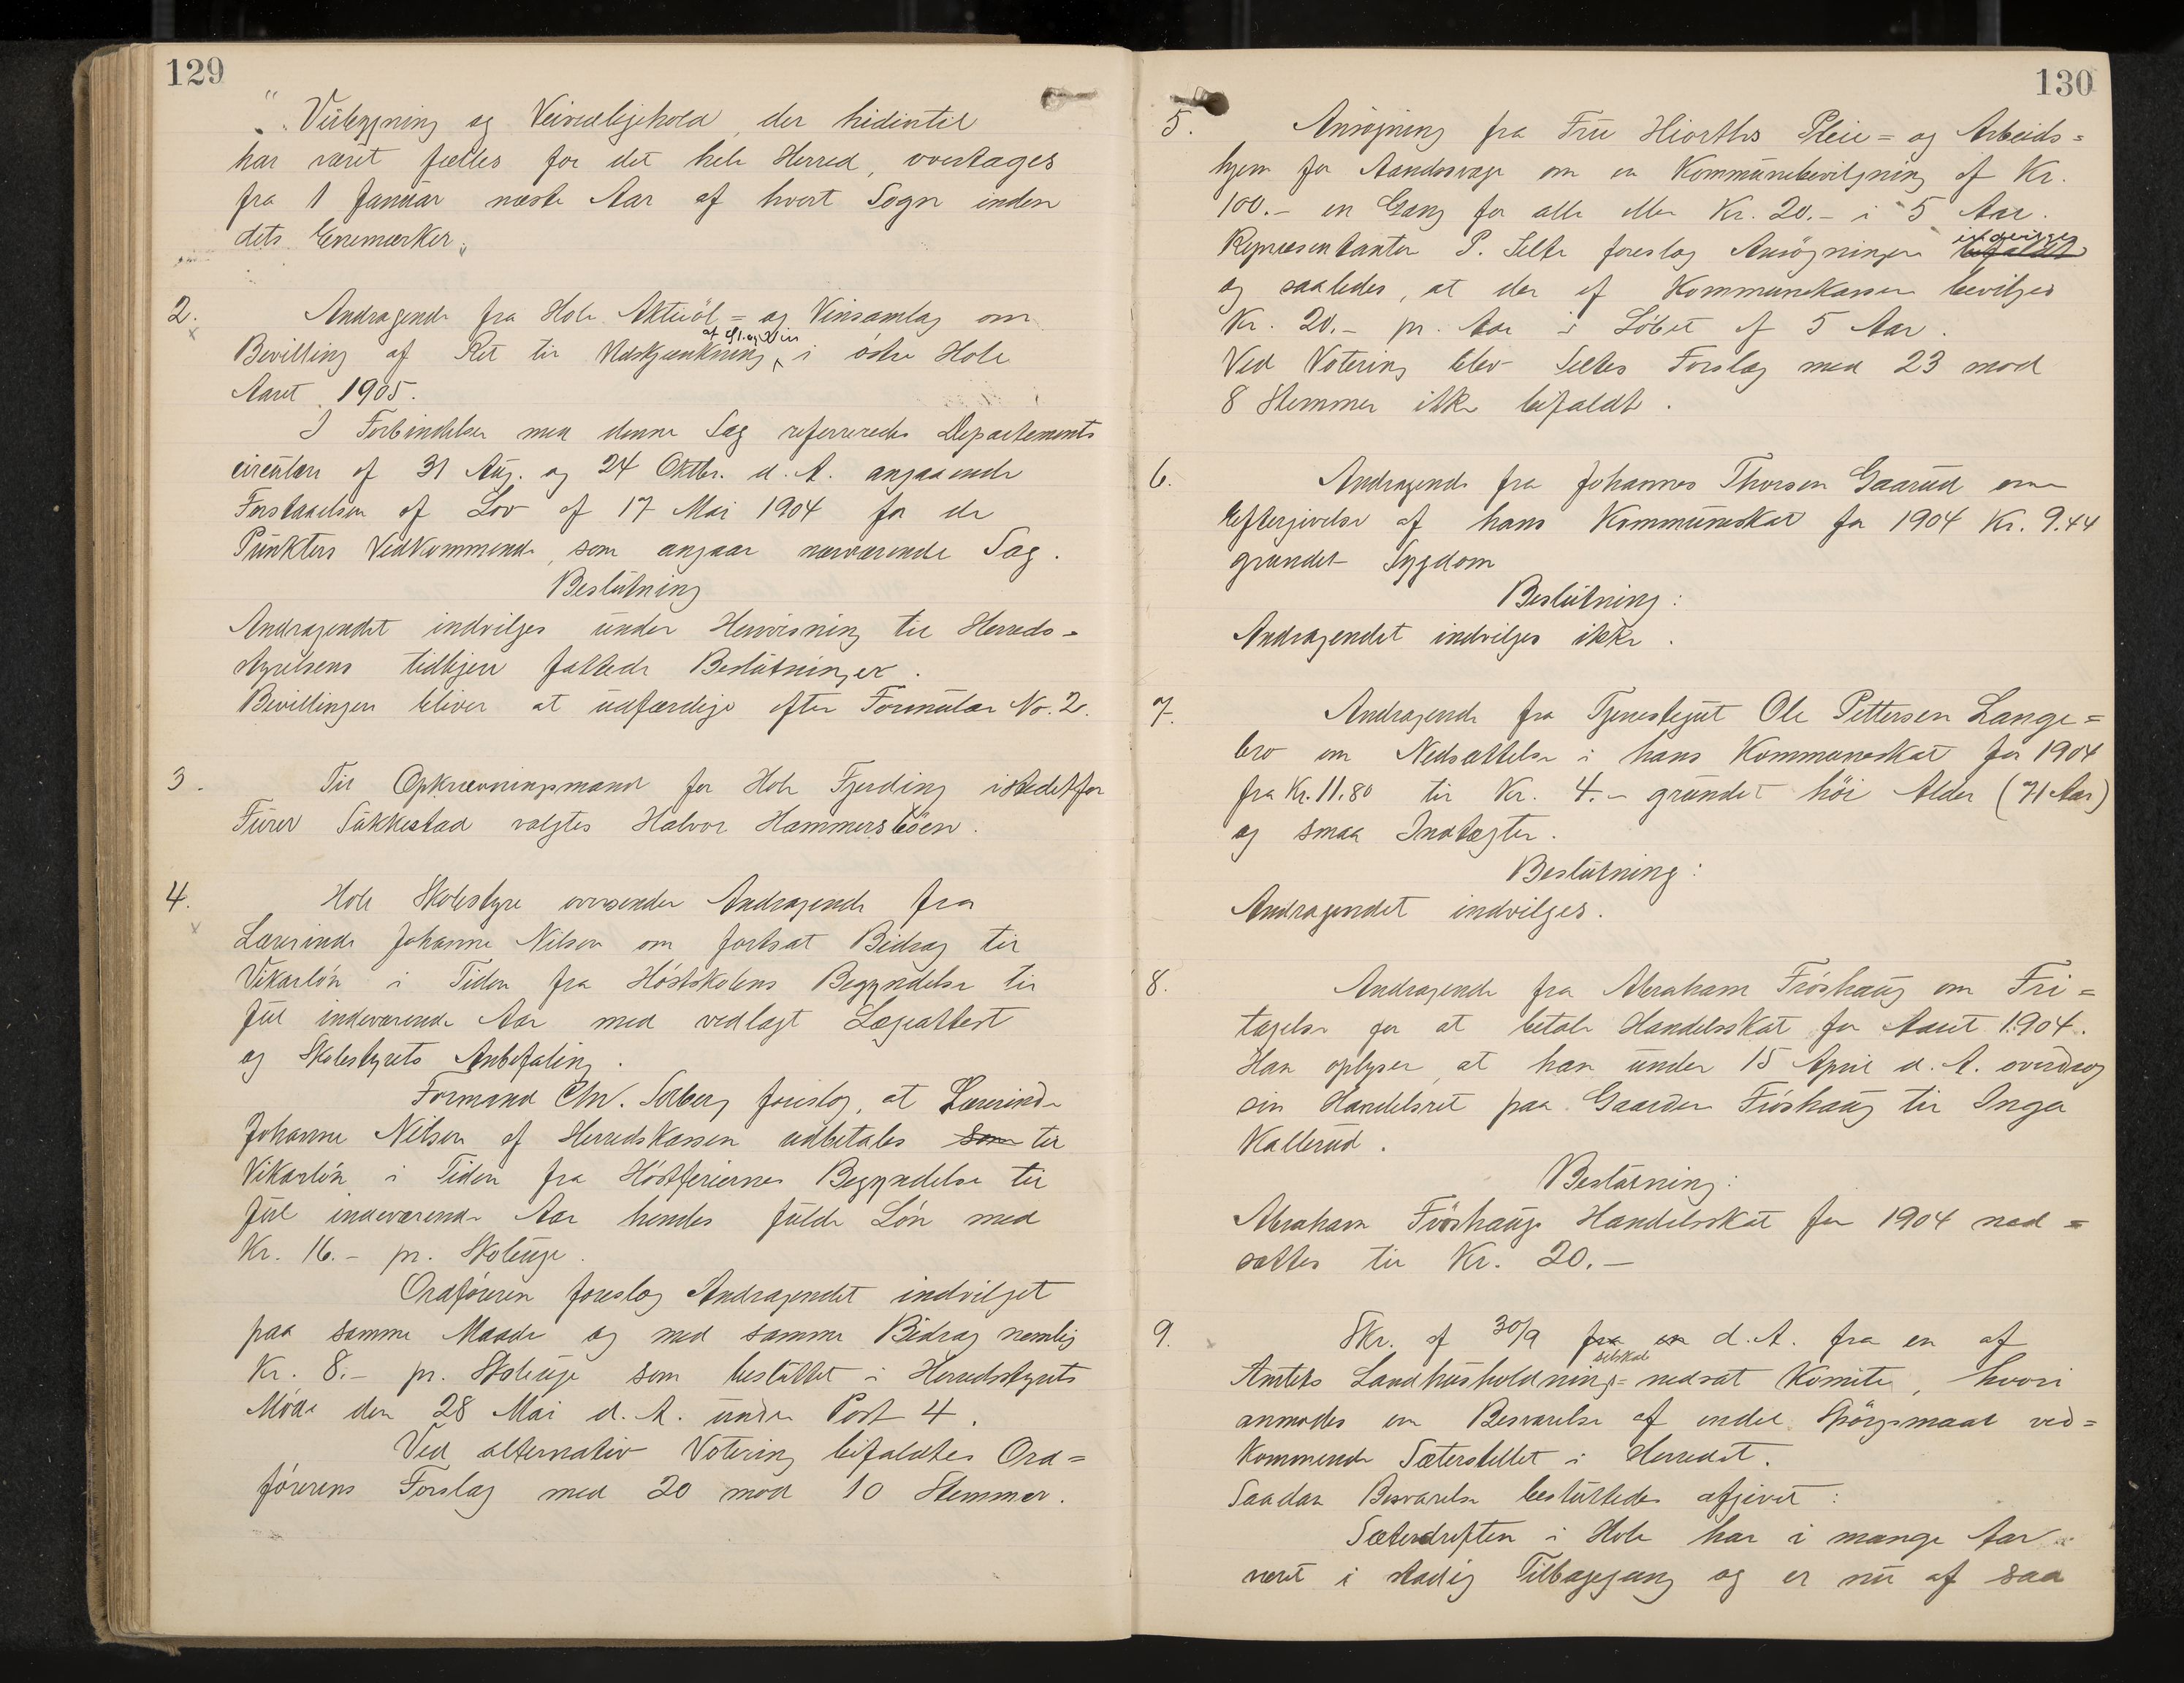 129
"Veibygning og Veivedligehold, der hidintil
har været fælles for det hele Herred, overtages
fra 1 Januar næste Aar af hvert Sogn inden
dets Enemærker."
2. Andragende fra Hole Aktieöl= og Vinsamlag om
Bevilling af Ret til Udskjænkning af Öl og Vin i östre Hole
Aaret 1905.
I Forbindelse med denne Sag refereredes Departements
circulære af 31 Aug. og 24 Oktbr. d. A. angaaende
Forstaaelsen af Lov af 17 Mai 1904 for de
Punkters Vedkommende, som angaar nærværende Sag.
Beslutning
Andragendet indvilges under Henvisning til Herreds=
styrelsens tidligere fattede Beslutninger.
Bevillingen bliver at udfærdige efter Formular No. 2.
3. Til Opkrævningsmand for Hole Fjerding istedetfor
Furer Sækkestad valgtes Halvor Hammersböen.
4. Hole Skolestyre oversender Andragende fra
Lærerinde Johanne Nilsen om fortsat Bidrag til
Vikarlön i Tiden fra Höstskolens Begyndelse til
Jul indeværende Aar med vedlagt Lægeattest
og Skolestyrets Anbefaling.
Formand Chr. Solberg foreslog, at Lærerinde
Johanne Nilsen af Herredskassen udbetales som til
Vikarlön i Tiden fra Höstferiernes Begyndelse til
Jul indeværende Aar hendes fulde Lön med
Kr. 16.- pr. Skoleuge.
Ordföreren foreslog Andragendet indvilget
paa samme Maade og med samme Bidrag nemlig
Kr. 8.- pr. Skoleuge som besluttet i Herredsstyrets
Möde den 28 Mai d. A. under Post 4.
Ved alternativ Votering bifaldtes Ord=
förerens Forslag med 20 mod 10 Stemmer.
130
5. Ansögning fra Fru Hiorths Pleie= og Arbeids=
hjem for Aandssvage om en Kommunebevilgning af Kr.
100.- en Gang for alle eller Kr. 20.- i 5 Aar.
Repræsentanten P. Selte foreslog Ansögningen bifaldt indvilget
og saaledes, at der af Kommunekassen bevilges
Kr. 20.- pr. Aar i Löbet af 5 Aar.
Ved Votering blev Seltes Forslag med 23 mod
8 Stemmer ikke bifaldt.
6. Andragende fra Johannes Thorsen Gaarud om
Eftergivelse af hans Kommuneskat for 1904 Kr. 9.44
grundet Sygdom
Beslutning:
Andragendet indvilges ikke.
7. Andragende fra Tjenestegut Ole Pettersen Lange=
bro om Nedsættelse i hans Kommuneskat for 1904
fra Kr. 11.80 til Kr. 4.- grundet höi Alder (71 Aar)
og smaa Indtægter.
Beslutning:
Andragendet indvilges.
8. Andragende fra Abraham Fröshaug om Fri=
tagelse for at betale Handelsskat for Aaret 1904.
Han oplyser, at han under 15 April d. A. overdrog
sin Handelsret paa Gaarden Fröshaug til Inga
Kallerud.
Beslutning:
Abraham Fröshaugs Handelsskat for 1904 ned=
sættes til Kr. 20.-
9. Skr. af 30/9 fra en d. A. fra en af
Amtets Landhusholdningsselskab nedsat Komite, hvori
anmodes om Besvarelse af endel Spörgsmaal ved=
kommende Sæterstellet i Herredet.
Saadan Besvarelse besluttedes afgivet:
Sæterdriften i Hole har i mange Aar
været i stadig Tilbagegang og er nu af saa